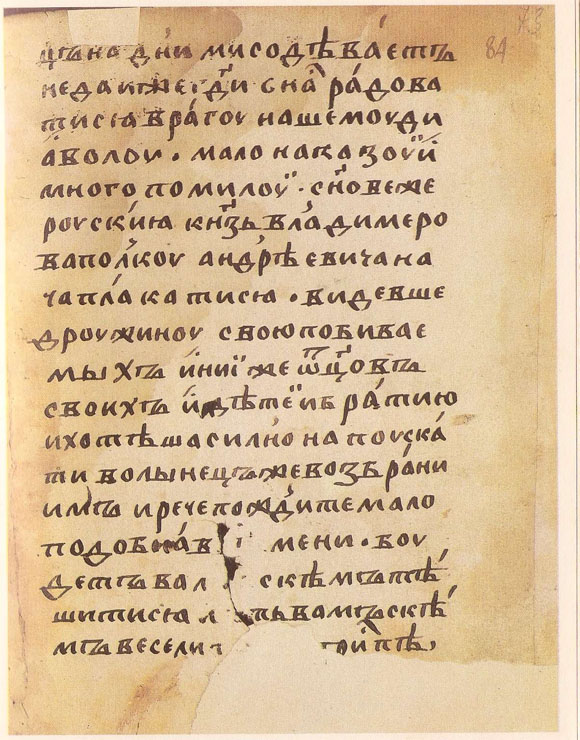 84
дн҃и ми содѣваетъ
не даи же г҃ди с на радова
тися врагоу нашемоу ди
аволоу. мало наказоуй
много помилоуй. сн҃ове же
роуския кн҃зь владимеро
ва полкоу андрѣевича на
ча плакатися. видевше
дроужиноу свою побивае
мыхъ инии же ѿц҃овъ
своихъ и дѣтей и братию
и хотѣша силно на поуска
ти волынецъ же возбрани
имъ и рече пождите мало
подобна в мени. боу
детъ ва скѣмъ тѣ
шитися ть вамъ скѣ
мъ весели пѣ